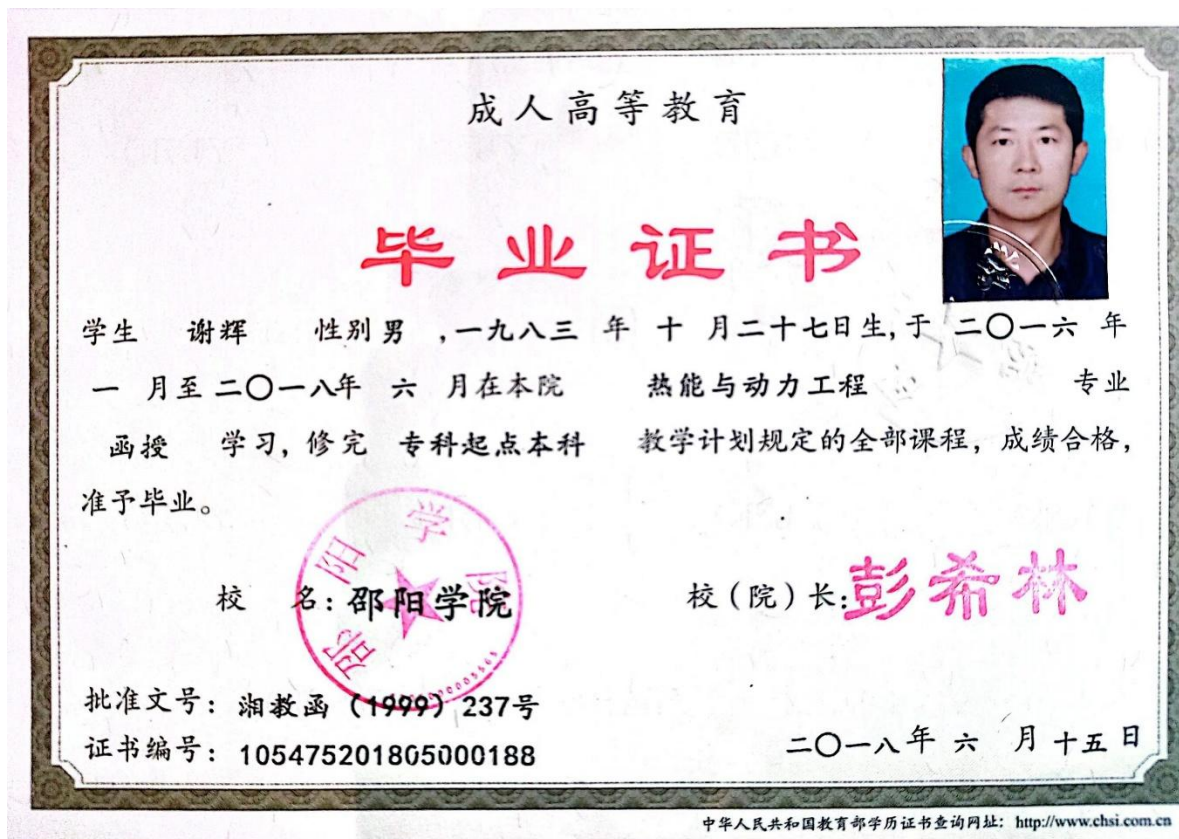 成人高等教育
毕业证书
学生 谢辉 性别 男 ,一九八三 年 十 月二十七日生,于 二〇一六 年
一 月至 二〇一八年 六 月在本院 热能与动力工程 专业
函授 学习, 修完 专科起点本科 教学计划规定的全部课程, 成绩合格,
准予毕业。
邵阳学院
校 名: 邵阳学院
校(院)长: 彭希林
批准文号: 湘教函(1999)237号
证书编号: 105475201805000188
二〇一八年 六 月 十五 日
中华人民共和国教育部学历证书查询网址: http://www.chsi.com.cn